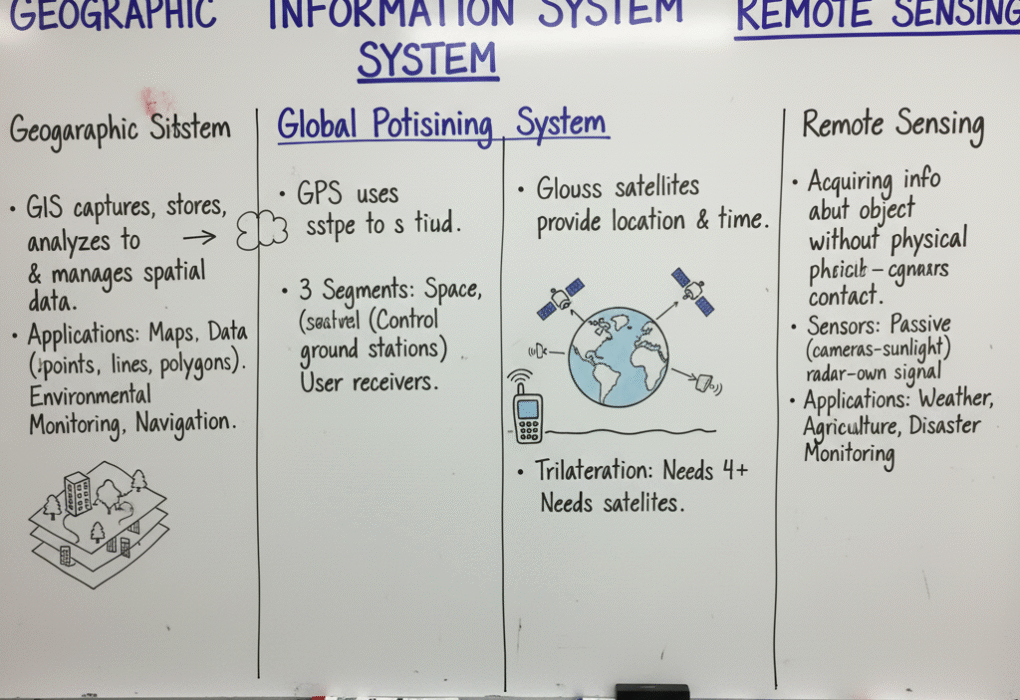 GEOGRAPHIC INFORMATION SYSTEM REMOTE SENSING
SYSTEM
Geogaraphic Sitstem
• GIS captures, stores,
analyzes to →
& manages spatial
data.
• Applications: Maps, Data
(:points, lines, polygons).
Environmental
Monitoring, Navigation.
Global Potisining System
• GPS uses
sstpe to s tiud.
• 3 Segments: Space,
(Control
ground stations)
User receivers.
• Glouss satellites
provide location & time.
• Trilateration: Needs 4+
Needs satelites.
Remote Sensing
• Acquiring info
abut object
without physical
contact.
• Sensors: Passive
(cameras-sunlight)
radar-own signal
• Applications: Weather,
Agriculture, Disaster
Monitoring